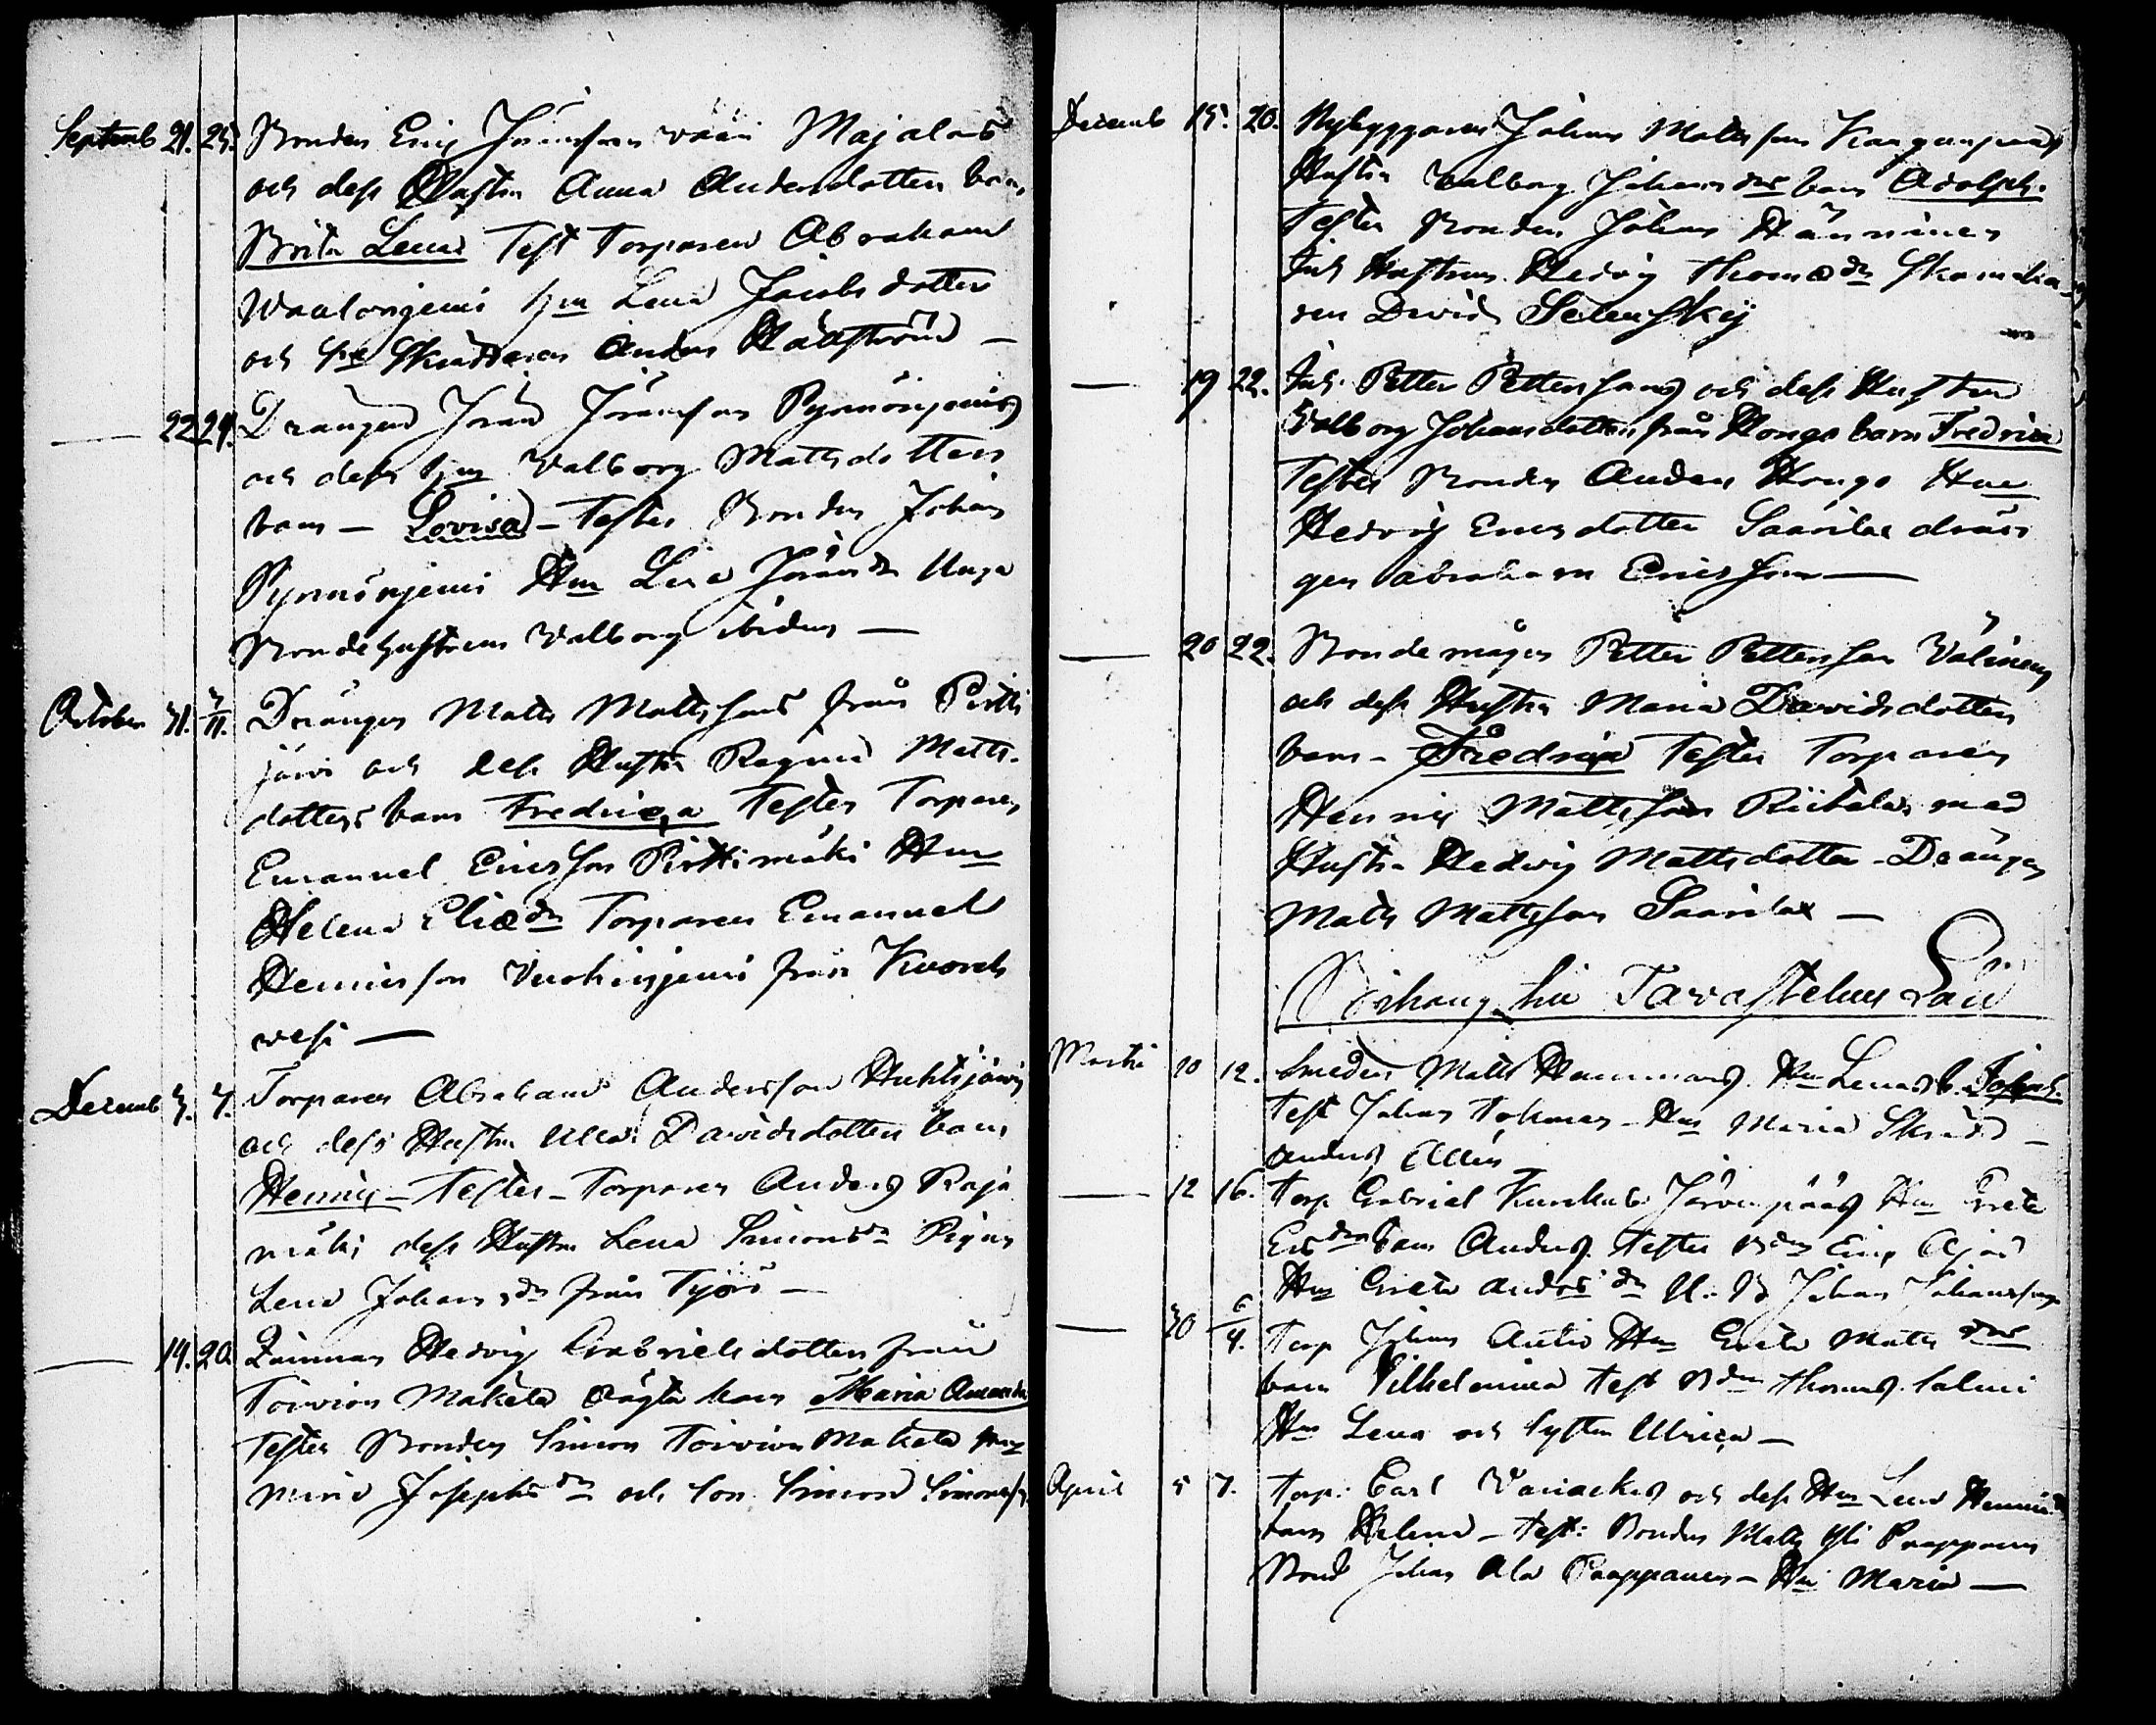 Septemb 21. 25. Bonden Eric Jöransson Majalas
och dess Hustru Anna Andersdotters barn
Brita Lena Test Torparen Abraham
hu Lena Jacobs dotter
och Skräddaren Anders Hällström —
— 22 29. Drängen Jöran Jöransson Pynnönjemis
och dess hu Valborg Matts dotters
barn — Lovisa — Testes Bonden Johan
Pynnönjemi Hu Lisa Jörans dr Unga
Bondehustrun Valborg ibidem —
October 31. Drängen Matts Mattsson från Pitki
järvi och dess Hustru Regina Matts-
dotters barn Fredrica Testes Torparen
Emanuel Ericsson Pirttimäki Hu
Helena Eliæ dr Torparen Emanuel
Henricsson från Kuoreh
vesi —
Decemb 3. 7. Torparen Abraham Andersson Huhtijärvi
och dess Hustru Ulla Davidsdotters barn
Henric — Testes — Torparen Anders Raja
mäki dess Hustru Lena Simons dr Pigan
Lena Johans dr från Työrö —
— 14. 20. Qvinnan Hedvig Gabrielsdotters från
Toivion Makela oägta barn Maria Amanda
Testes Bonden Simon Toivion Makela
Maria Josephs dr och Son Simon Simonss.
Decemb 15. 20. Nybyggaren Johan Mattsson Kangenpää
Hustru Valborg Johans dr barn Adolph.
Testes Bonden Johan Hänninen
Inh Hustrun Hedvig Thomæ dr Skomaka-
ren David Selensky
— 19 22. Inh. Petter Pettersson och dess Hustru
Valborg Johansdotters från Hongo barn Fredrica
Testes Bonden Anders Hongo Hu
Hedvig Ericsdotter Saarilax drän
gen Abraham Ericsson —
— 20 22. Bondemågen Petter Pettersson Välinen
och dess Hustru Maria Davidsdotters
barn — Fredrica Testes Torparen
Henric Mattsson Riihelax med
Hustru Hedvig Mattsdotter — Drängen
Matts Mattsson Saarilax —
Bihang från Tavastehus Län
Martii 10 12. Smeden Matts Hammars Hu Lenas b. Joseph.
Test Johan Hu Maria Skrädd —
Anders
— 12 16. Torp Gabriel Järvenpääs Hu Greta
Ers dr barn Anders. Testes Bdn Eric Ajas
Hu Greta Anders dr U. B Johan Johansson
— 30 6/4. Torp Johan Autio Hu Greta Matts dr
barn Vilhelmina Test Bdn Thomas Salmi
Hu Lena och Syster Ulrica —
April 5 7. Torp: Carl och dess Hu Lena Henrics dr
barn Helena — Test: Bonden Matts Yli Paappanen
Bond Johan Ala Paappanen — Hu Maria —